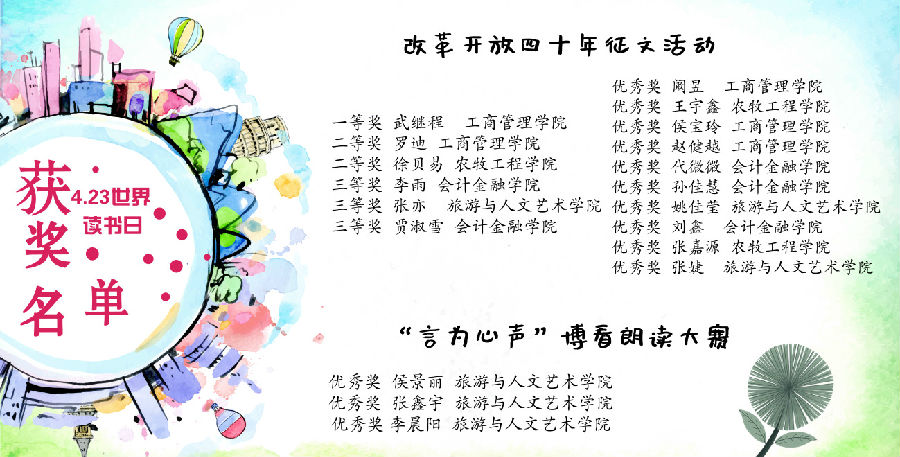 获奖名单
4.23世界
读书日
改革开放四十年征文活动
一等奖 武继程 工商管理学院
二等奖 罗迪 工商管理学院
二等奖 徐贝易 农牧工程学院
三等奖 李雨 会计金融学院
三等奖 张亦 旅游与人文艺术学院
三等奖 贾淑雪 会计金融学院
优秀奖 阚昱 工商管理学院
优秀奖 王宇鑫 农牧工程学院
优秀奖 侯宝玲 工商管理学院
优秀奖 赵健越 工商管理学院
优秀奖 代微微 会计金融学院
优秀奖 孙佳慧 会计金融学院
优秀奖 姚佳莹 旅游与人文艺术学院
优秀奖 刘鑫 会计金融学院
优秀奖 张嘉源 农牧工程学院
优秀奖 张婕 旅游与人文艺术学院
“言为心声”博看朗读大赛
优秀奖 侯景丽 旅游与人文艺术学院
优秀奖 张鑫宇 旅游与人文艺术学院
优秀奖 李晨阳 旅游与人文艺术学院